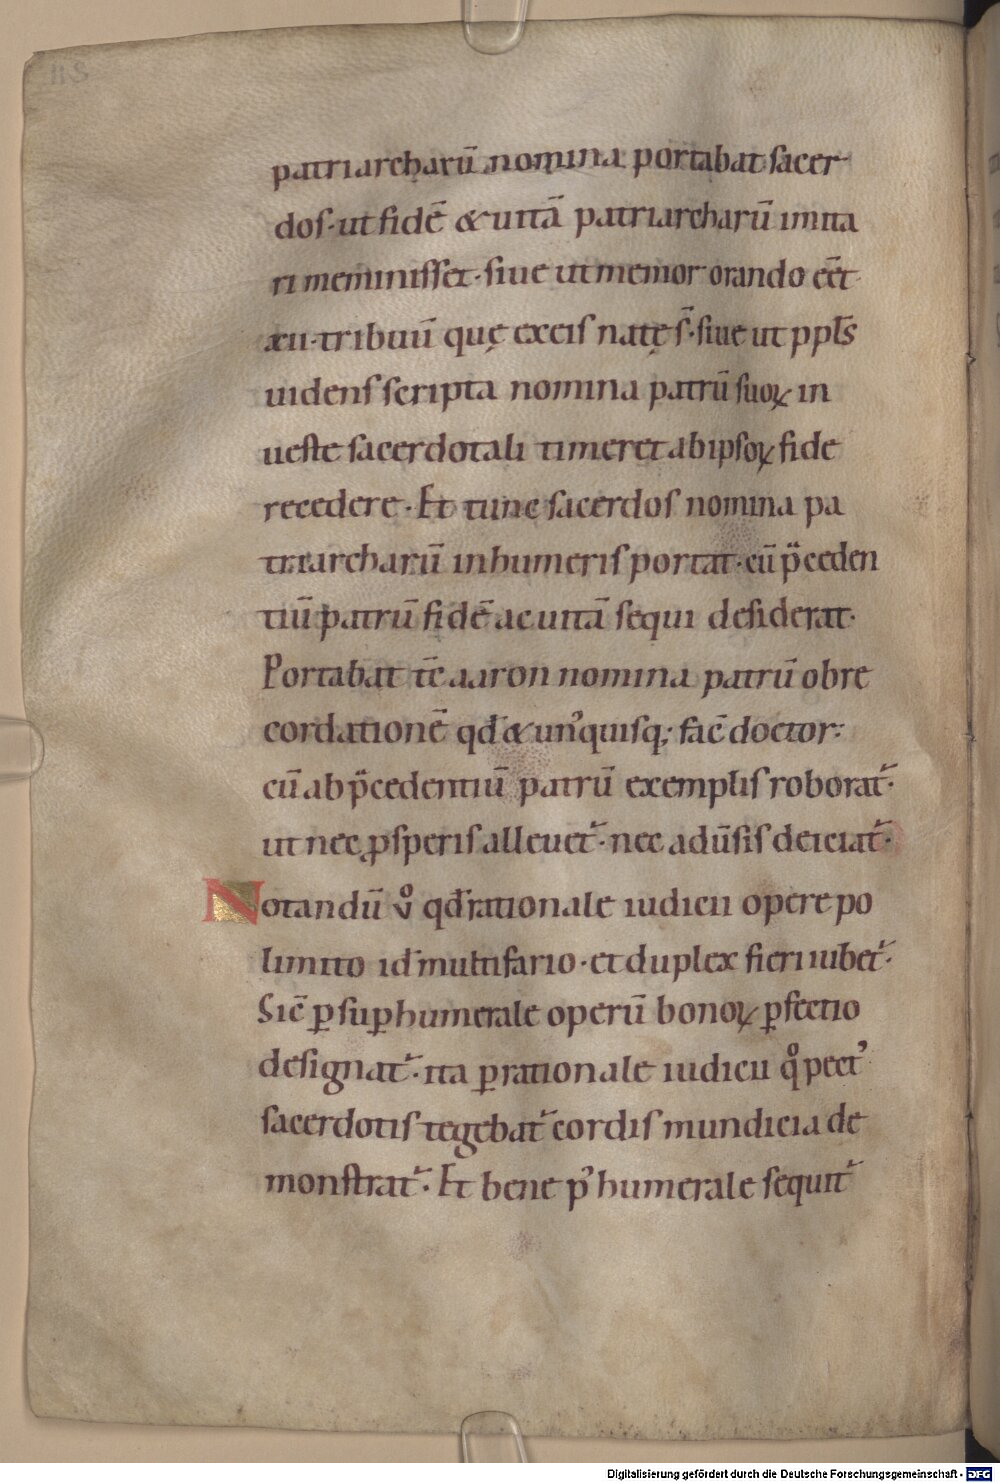 patriarcharū nomina portabat sacer
dos· ut fidē & uitā patriarcharū imita
ri meminisset· siue ut memor orando eēt
xii· tribuū quę ex eis natę s̄· siue ut ppl̄s
uidens scripta nomina patrū suoꝝ in
ueste sacerdotali timeret ab ipsoꝝ fide
recedere· Et tunc sacerdos nomina pa
triarcharū in humeris portat· cū p̄ceden
tiū patrū fidē ac uitā sequi desiderat·
Portabat tc̄ aaron nomina patrū ob re
cordationē qd̄ & un᾽quisq; fac̄ doctor·
cū ab p̄cedentiū patrū exemplis roborat᷑·
ut nec ꝓsperis alleuet᷑· nec adūsis deiciat᷑·
Notandū v̊ qd̄ rationale iudicii opere po
limito id̄ multifario· et duplex fieri iubet᷑·
Sic̄ ꝑ suꝑhumerale operū bonoꝝ ꝑfectio
designat᷑· ita ꝑ rationale iudicii qͦ pect᾽
sacerdotis tegebat᷑ cordis mundicia de
monstrat᷑· Et bene p᾽ humerale sequit᷑
Digitalisierung gefördert durch die Deutsche Forschungsgemeinschaft - DFG